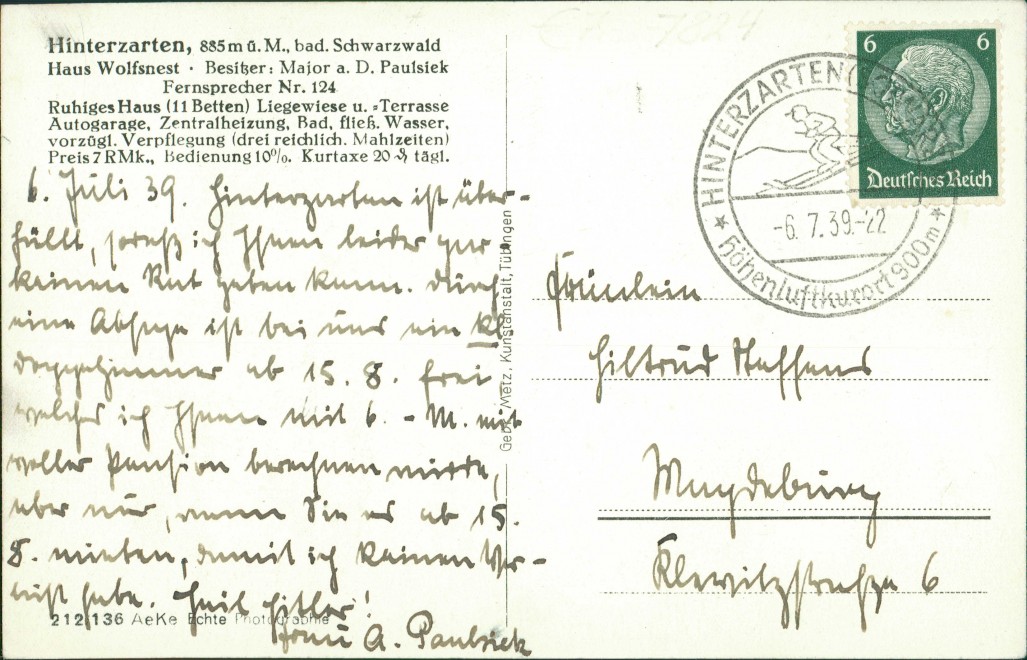 Hinterzarten, 885 m ü. M., bad. Schwarzwald
Haus Wolfsnest · Besitzer: Major a. D. Paulsiek
Fernsprecher Nr. 124
Ruhiges Haus (11 Betten) Liegewiese u. -Terrasse
Autogarage, Zentralheizung, Bad, fließ. Wasser,
vorzügl. Verpflegung (drei reichlich. Mahlzeiten)
Preis 7 RMk., Bedienung 10%. Kurtaxe 20 ₰ tägl.
6. Juli 39. Hinterzarten ist über-
füllt, sodaß ich Ihnen leider gar
keinen Rat geben kann. Durch
eine Absage ist bei uns ein kl.
Doppelzimmer ab 15. 8. frei
welches ich Ihnen mit 6.- M. mit
voller Pension berechnen würde,
aber nur, wenn Sie es ab 15.
8. mieten, damit ich keinen Ver-
lust habe. Heil Hitler!
Frau A. Paulsiek
212136 AeKe Echte Photographie
Gebr. Metz, Kunstanstalt, Tübingen
6 6
Deutsches Reich
HINTERZARTEN
-6.7.39.-22
Höhenluftkurort 900m
Fräulein
Hiltrud Steffens
Magdeburg
Klewitzstraße 6